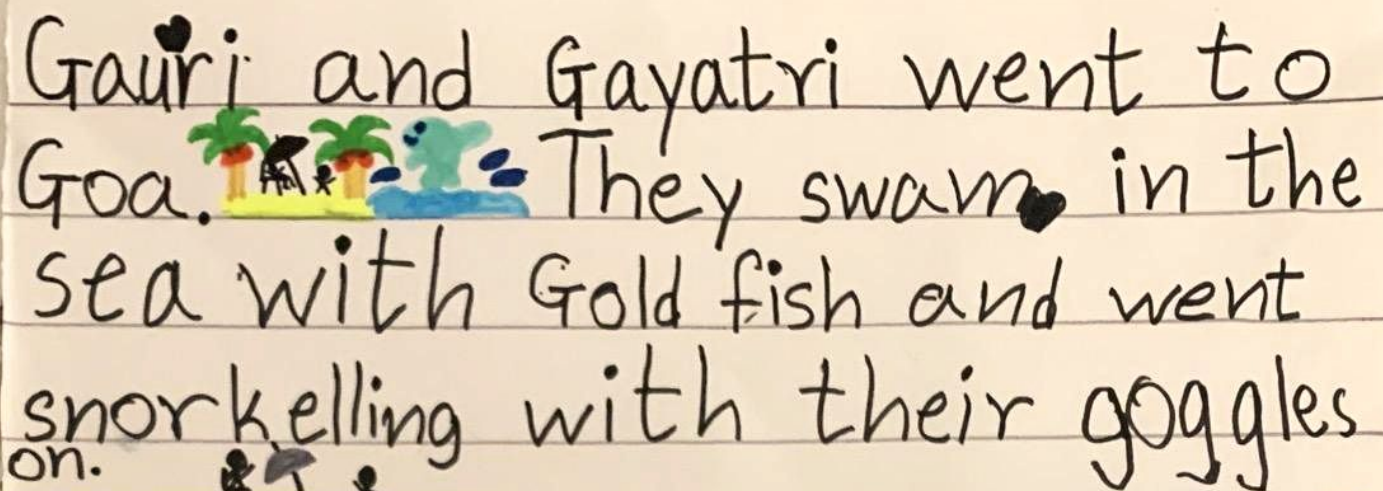 Gauri and Gayatri went to
Goa. They swam in the
sea with Gold fish and went
snorkelling with their goggles
on.